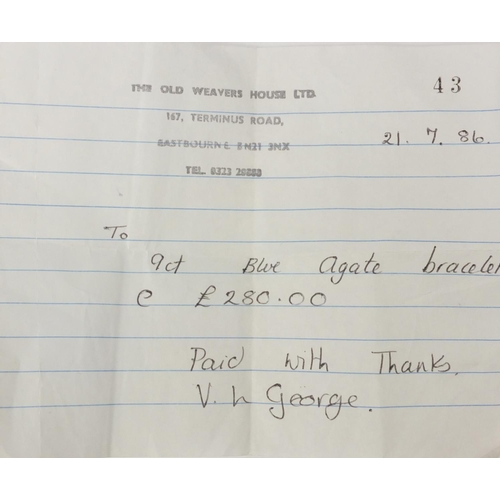 THE OLD WEAVERS HOUSE LTD.
43
167, TERMINUS ROAD,
EASTBOURNE BN21 3NX
21. 7. 86.
TEL. 0323 28888
To
9ct Blue Agate bracelet
@ £280.00
Paid with Thanks.
V. L George.